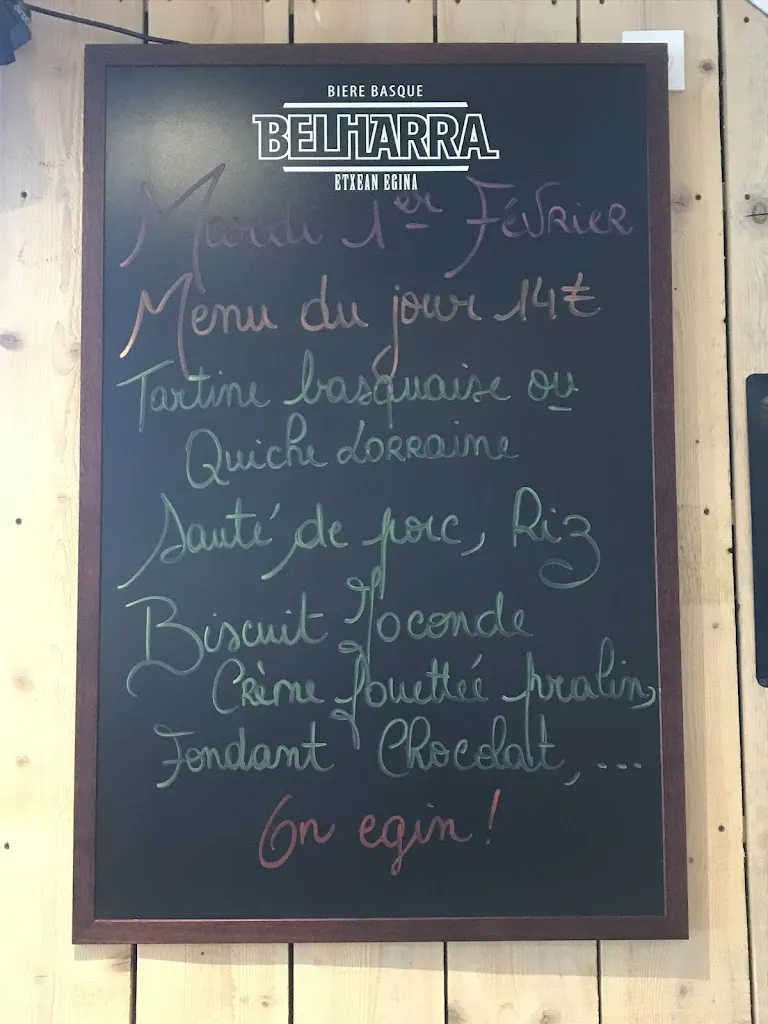 BIERE BASQUE
BELHARRA
ETXEAN EGINA
Mardi 1er Février
Menu du jour 14€
Tartine basquaise ou
Quiche Lorraine
Sauté de porc, Riz
Biscuit Joconde
Crème fouettée pralin,
Fondant Chocolat, ...
On egin!